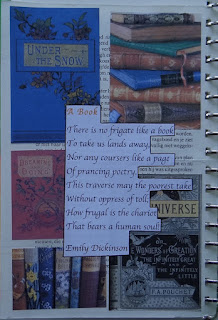 UNDER
THE SNOW
A Book
There is no frigate like a book
To take us lands away,
Nor any coursers like a page
Of prancing poetry.
This traverse may the poorest take
Without oppress of toll;
How frugal is the chariot
That bears a human soul!
Emily Dickinson
DREAMING
DOING
UNIVERSE
WONDERS OF CREATION
THE INFINITELY GREAT
AND
THE INFINITELY
LITTLE
F.A. POUCHET